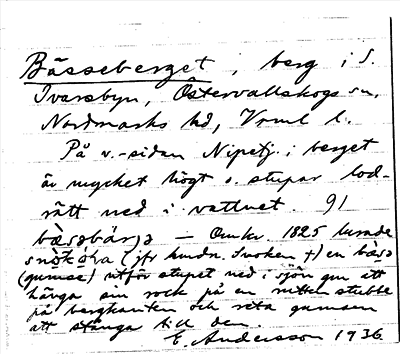 Bässeberget, berg i S.
Ivarsbyn, Östervallskogs sn,
Nordmarks hd, Vrml l.
På v.-sidan Nipetj. i berget
är mycket högt o. stupar lod-
rätt ned i vattnet. 91
bæsəbärjə — Omkr. 1825 lurade
(jfr hmdn. Snoken †) en bæsə
(gumse) utför stupet ned i sjön gm att
hänga sin rock på en stubbe
på bergkanten och reta gumsen
att stånga till den.
E. Andersson 1936